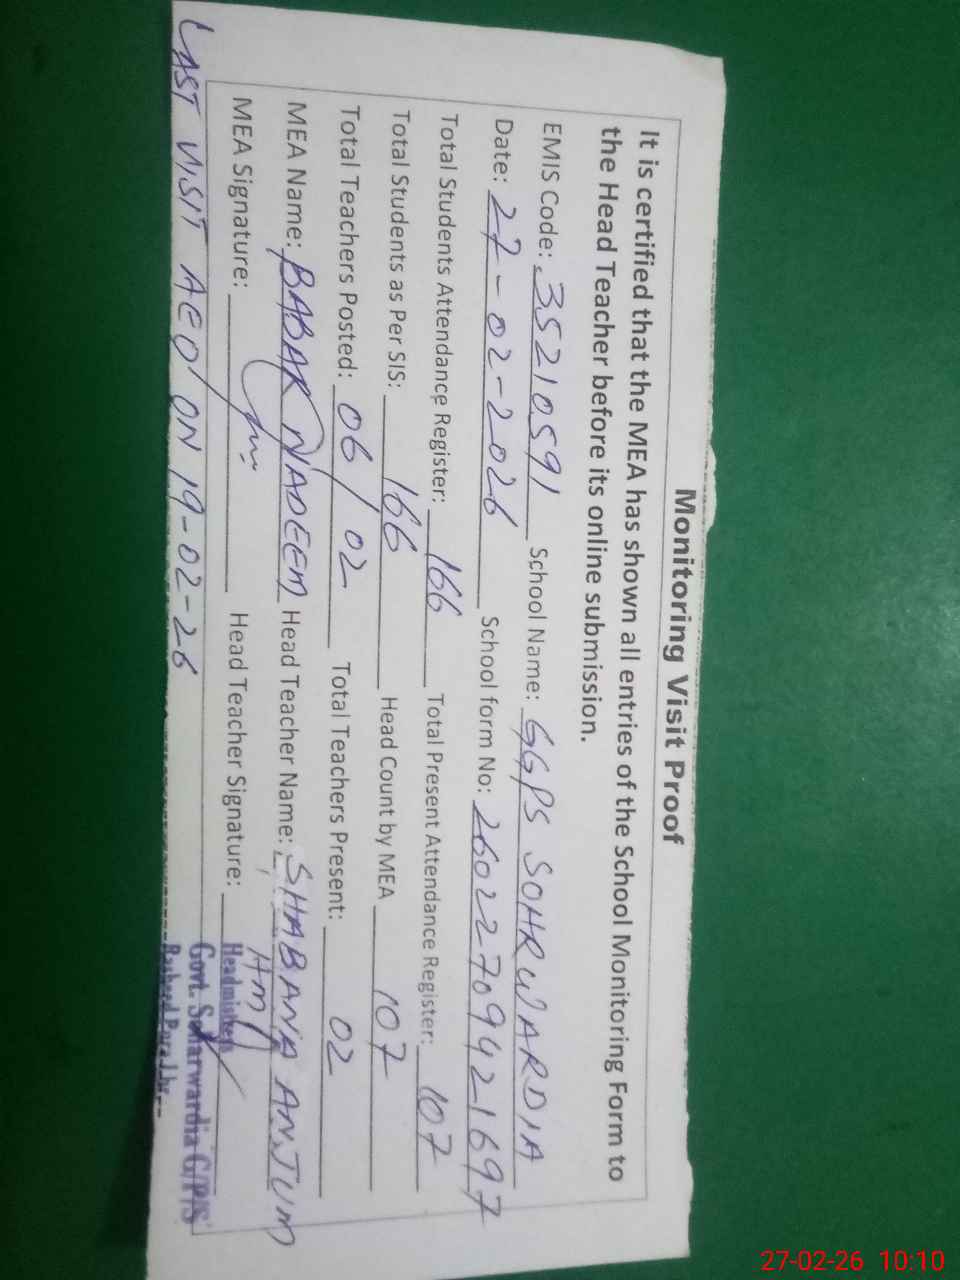 Monitoring Visit Proof
It is certified that the MEA has shown all entries of the School Monitoring Form to
the Head Teacher before its online submission.
EMIS Code: 35210591 School Name: GGPS SOHRWARDIA
Date: 27-02-2026 School form No: 26022709421697
Total Students Attendance Register: 166 Total Present Attendance Register: 107
Total Students as Per SIS: 166 Head Count by MEA 107
Total Teachers Posted: 06/02 Total Teachers Present: 02
MEA Name: BABAR NADEEM Head Teacher Name: SHABANA ANJUM
MEA Signature: Head Teacher Signature: H.M
Headmistress
Govt. Soharwardia G/P/S
LAST VISIT AEO ON 19-02-26
27-02-26 10:10